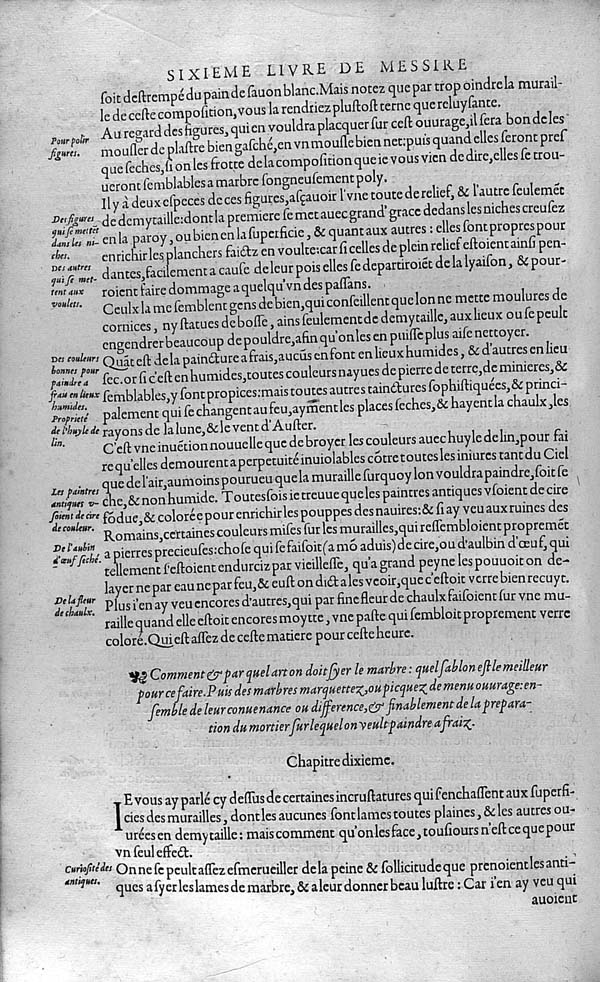 SIXIEME LIVRE DE MESSIRE
ſoit deſtrempé du pain de ſauon blanc. Mais notez que par trop oindre la murail-
le de ceſte compoſition, vous la rendriez pluſtoſt terne que reluyſante.
Pour polir
figures.
Au regard des figures, qui en vouldra placquer ſur ceſt ouurage, il ſera bon de les
mouller de plaſtre bien gaſché, en vn moulle bien net: puis quand elles ſeront preſ
que ſeches, ſi on les frotte de la compoſition que ie vous vien de dire, elles ſe trou-
ueront ſemblables a marbre ſongneuſement poly.
Il y à deux eſpeces de ces figures, aſçauoir l'vne toute de relief, & l'autre ſeulemēt
Des figures
qui ſe mettēt
dans les ni-
ches.
de demytaille: dont la premiere ſe met auec grand' grace dedans les niches creuſez
en la paroy, ou bien en la ſuperficie, & quant aux autres: elles ſont propres pour
enrichir les planchers faictz en voulte: car ſi celles de plein relief eſtoient ainſi pen-
Des autres
qui ſe met-
tent aux
voultes.
dantes, facilement a cauſe de leur pois elles ſe departiroiēt de la lyaiſon, & pour-
roient faire dommage a quelqu'vn des paſſans.
Ceulx la me ſemblent gens de bien, qui conſeillent que lon ne mette moulures de
cornices, ny ſtatues de boſſe, ains ſeulement de demytaille, aux lieux ou ſe peult
engendrer beaucoup de pouldre, afin qu'on les en puiſſe plus aiſe nettoyer.
Des couleurs
bonnes pour
paindre a
frau en lieux
humides.
Quāt eſt de la paincture a frais, aucūs en font en lieux humides, & d'autres en lieu
ſec. or ſi c'eſt en humides, toutes couleurs nayues de pierre de terre, de minieres, &
ſemblables, y ſont propices: mais toutes autres tainctures ſophiſtiquées, & princi-
palement qui ſe changent au feu, ayment les places ſeches, & hayent la chaulx, les
rayons de la lune, & le vent d'Auſter.
Proprieté
de l'huyle de
lin.
C'eſt vne inuētion nouuelle que de broyer les couleurs auec huyle de lin, pour fai
re qu'elles demourent a perpetuité inuiolables cōtre toutes les iniures tant du Ciel
que de l'air, au moins pourueu que la muraille ſur quoy lon vouldra paindre, ſoit ſe
Les paintres
antiques v-
ſoient de cire
de couleur.
che, & non humide. Touteſfois ie treuue que les paintres antiques vſoient de cire
fōdue, & colorée pour enrichir les pouppes des nauires: & ſi ay veu aux ruines des
Romains, certaines couleurs miſes ſur les murailles, qui reſſembloient propremēt
De l'aubin
d'œuf ſeché.
a pierres precieuſes: choſe qui ſe faiſoit (a mō aduis) de cire, ou d'aulbin d'œuf, qui
tellement s'eſtoient endurciz par vieilleſſe, qu'a grand peyne les pouuoit on de-
layer ne par eau ne par feu, & euſt on dict a les veoir, que c'eſtoit verre bien recuyt.
De la fleur
de chaulx.
Plus i'en ay veu encores d'autres, qui par fine fleur de chaulx faiſoient ſur vne mu-
raille quand elle eſtoit encores moytte, vne paſte qui ſembloit proprement verre
coloré. Qui eſt aſſez de ceſte matiere pour ceſte heure.
Comment & par quel art on doit ſyer le marbre: quel ſablon eſt le meilleur
pour ce faire. Puis des marbres marquettez, ou picquez de menu ouurage: en-
ſemble de leur conuenance ou difference, & finablement de la prepara-
tion du mortier ſur lequel on veult paindre a fraiz.
Chapitre dixieme.
IE vous ay parlé cy deſſus de certaines incruſtatures qui ſ'enchaſſent aux ſuperfi-
cies des murailles, dont les aucunes ſont lames toutes plaines, & les autres ou-
urées en demytaille: mais comment qu'on les face, touſiours n'eſt ce que pour
vn ſeul effect.
Curioſité des
antiques.
On ne ſe peult aſſez eſmerueiller de la peine & ſollicitude que prenoient les anti-
ques a ſyer les lames de marbre, & a leur donner beau luſtre: Car i'en ay veu qui
auoient